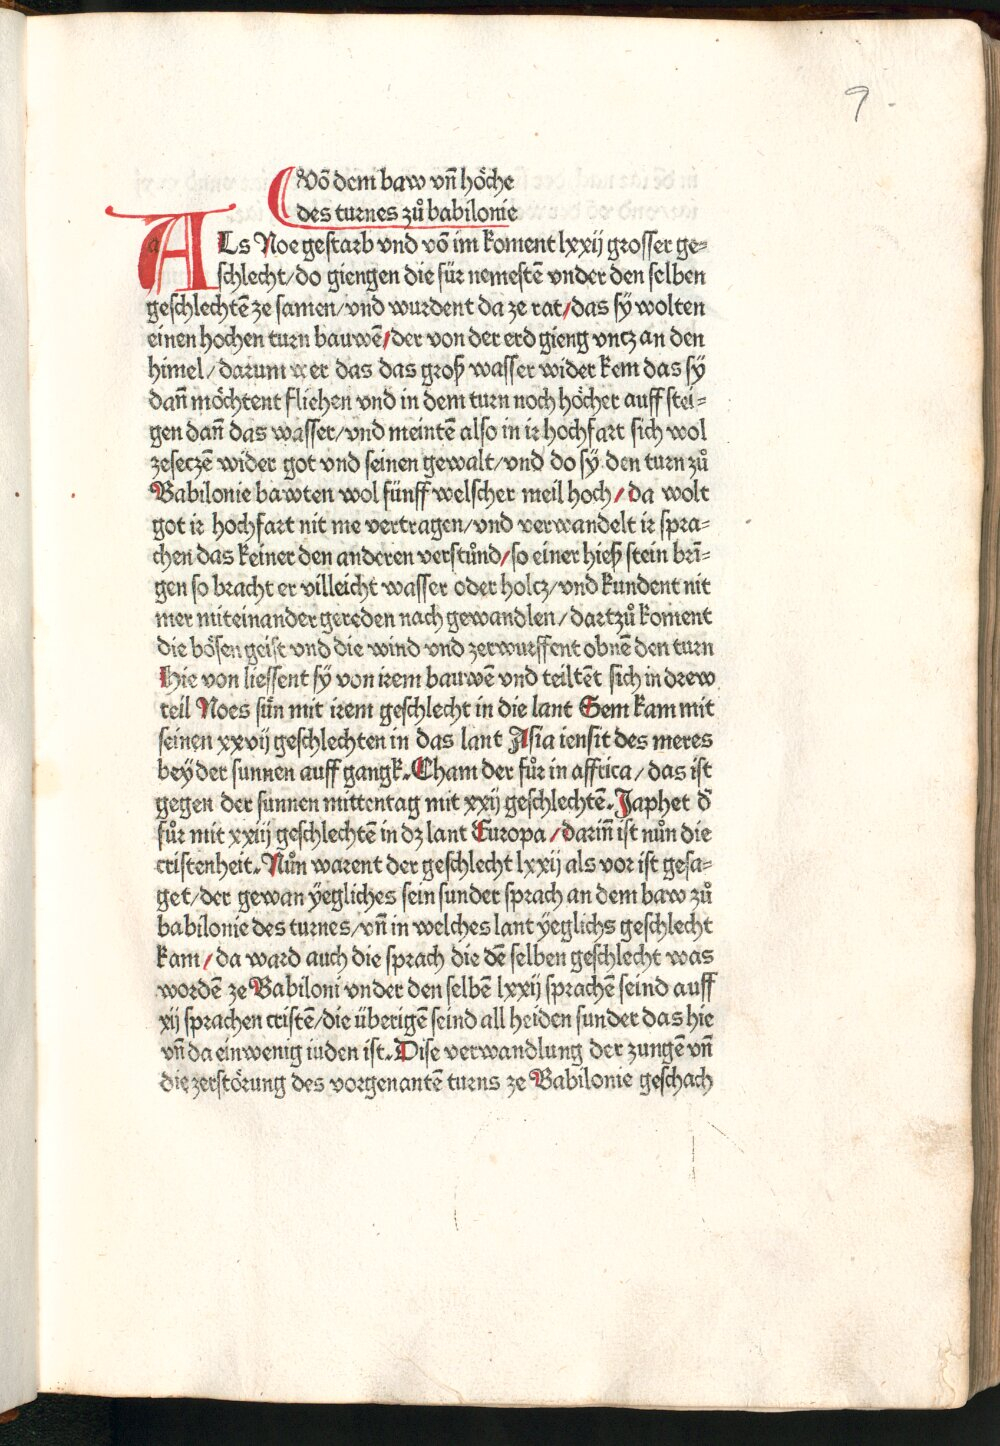 9
Võ dem baw vñ höche
des turnes zů babilonie
ALs Noe gestarb vnd võ im koment lxxij grosser ge⸗
schlecht/do giengen die für nemestẽ vnder den selben
geschlechtẽ ze samen/vnd wurdent da ze rat/das sÿ wolten
einen hochen turn bauwẽ/der von der erd gieng vntz an den
himel/darum wer das das groß wasser wider kem das sÿ
dañ möchtent fliehen vnd in dem turn noch höcher auff stei⸗
gen dañ das wasser/vnd meintẽ also in ir hochfart sich wol
zesetzẽ wider got vnd seinen gewalt/vnd do sÿ den turn zů
Babilonie bawten wol fünff welscher meil hoch/da wolt
got ir hochfart nit me vertragen/vnd verwandelt ir spra⸗
chen das keiner den anderen verstůnd/so einer hieß stein brĩ⸗
gen so bracht er villeicht wasser oder holtz/vnd kundent nit
mer miteinander gereden nach gewandlen/dartzů koment
die bösen geist vnd die wind vnd zerwurffent obnẽ den turn
Hie von liessent sÿ von irem bauwẽ vnd teiltẽt sich in drew
teil Noes sün mit irem geschlecht in die lant Sem kam mit
seinen xxvij geschlechten in das lant Asia iensit des meres
beÿ der sunnen auff gangk. Cham der fůr in affrica/das ist
gegen der sunnen mittentag mit xxij geschlechtẽ. Japhet d̕
fůr mit xxiij geschlechtẽ in dz lant Europa/dariñ ist nůn die
cristenheit. Nůn warent der geschlecht lxxij als vor ist gesa⸗
get/der gewan ÿegliches sein sunder sprach an dem baw zů
babilonie des turnes/vñ in welches lant ÿeglichs geschlecht
kam/da ward auch die sprach die dẽ selben geschlecht was
wordẽ ze Babiloni vnder den selbẽ lxxij sprachẽ seind auff
xij sprachen cristẽ/die überigẽ seind all heiden sunder das hie
vñ da ein wenig iuden ist. Dise verwandlung der zungẽ vñ
die zerstörung des vorgenantẽ turns ze Babilonie geschach